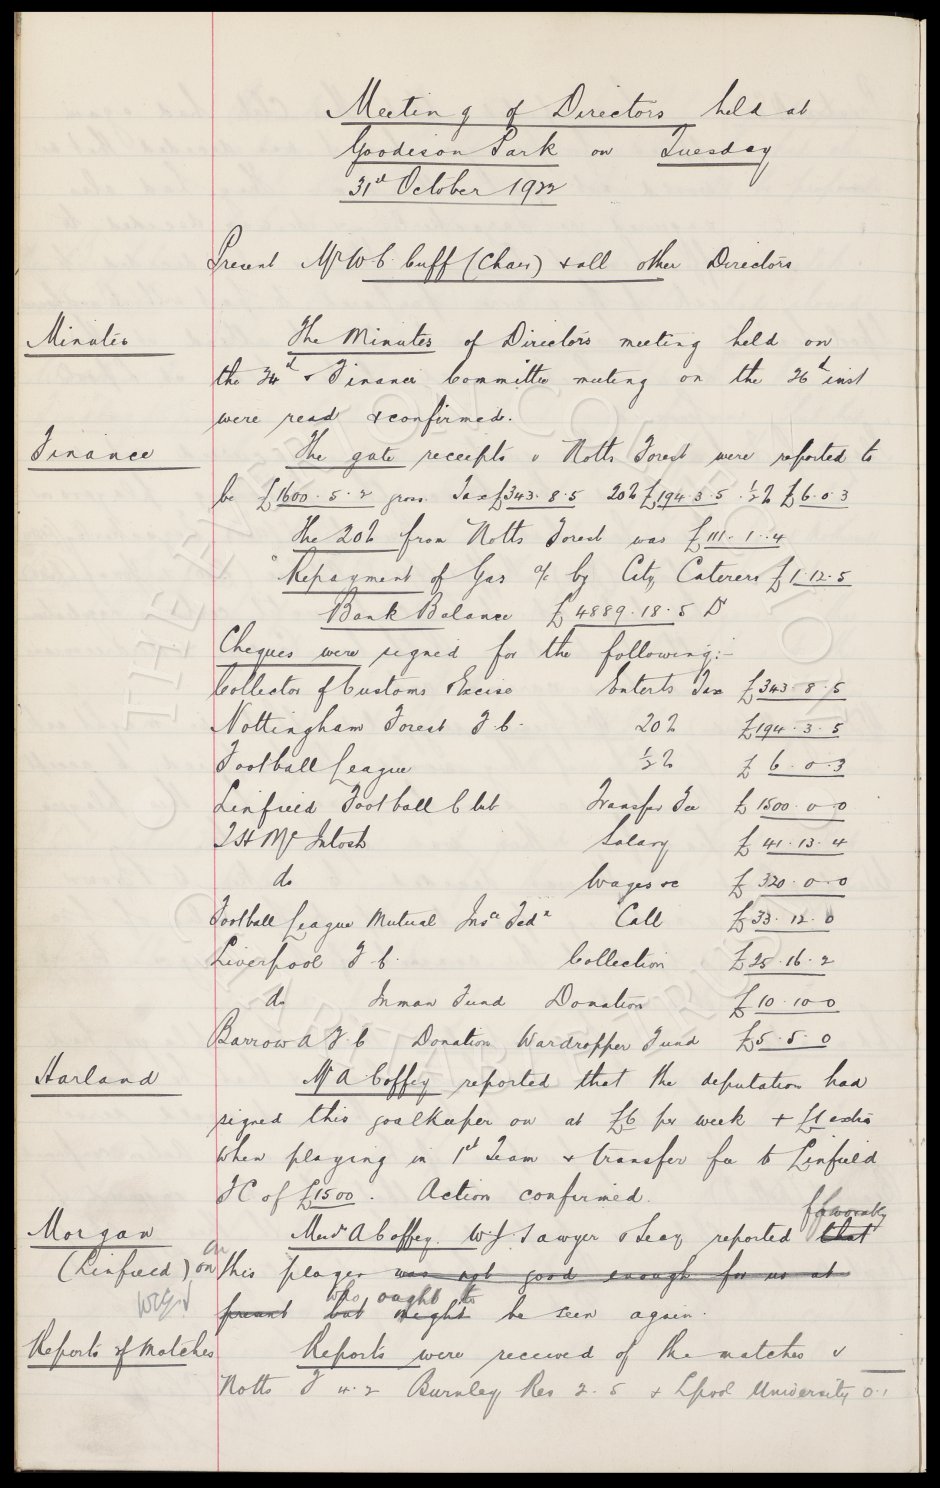 Meeting of Directors held at
Goodison Park on Tuesday
31st October 1922
Present Mr W C Cuff (Chair) & all other Directors
Minutes
The Minutes of Directors meeting held on
the 24th & Finance Committee meeting on the 26th inst
were read & confirmed.
Finance
The gate receipts v Notts Forest were reported to
be £1600.5.2 gross Tax £343.8.5 20% £194.3.5. ½% £6.0.3
The 20% from Notts Forest was £111.1.4
Repayment of Gas a/c by City Caterers £1.12.5
Bank Balance £4889.18.5 Dr
Cheques were signed for the following:-
Collector of Customs & Excise Enterts Tax £343.8.5
Nottingham Forest F.C. 20% £194.3.5
Football League ½% £6.0.3
Linfield Football Club Transfer Fee £1500.0.0
T H McIntosh Salary £41.13.4
do Wages &c £320.0.0
Football League Mutual Insce Fedn Call £33.12.0
Liverpool F.C. Collection £25.16.2
do Inman Fund Donation £10.10.0
Barrow A F.C Donation Wardropper Fund £5.5.0
Harland
Mr A Coffey reported that the deputation had
signed this goalkeeper on at £6 per week + £1 extra
when playing in 1st Team & transfer fee to Linfield
FC of £1500. Action confirmed.
Morgan
(Linfield)
favorably
Messrs A Coffey. W J Sawyer & Leay reported that
on this player was not good enough for us at
who ought to
present but might be seen again.
Reports of Matches
Reports were received of the matches v
Notts F 4.2 Burnley Res 2.5 & Lpool University 0.1
THE EVERTON COLLECTION
CHARITABLE TRUST